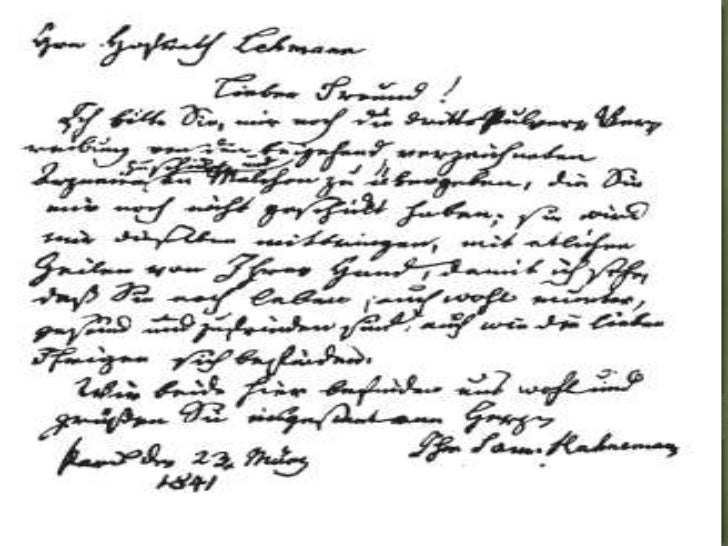 Hrn Hofrath Lehmann
Lieber Freund!
Ich bitte Sie, mir noch die dritte Pulver Ver
reibung von den beigehend verzeichneten
zu schicken und
Arzneien an Malchen zu übergeben, die Sie
mir noch nicht geschickt haben; sie wird
mir dieselben mitbringen, mit etlichen
Zeilen von Ihrer Hand, damit ich sehe,
daß Sie noch leben, auch wohl munter,
gesund und zufrieden sind, auch wie die lieben
Ihrigen sich befinden.
Wir beide hier befinden uns wohl und
grüßen Sie insgesamt von Herzen
Paris den 23. März Ihr Sam. Hahnemann
1841